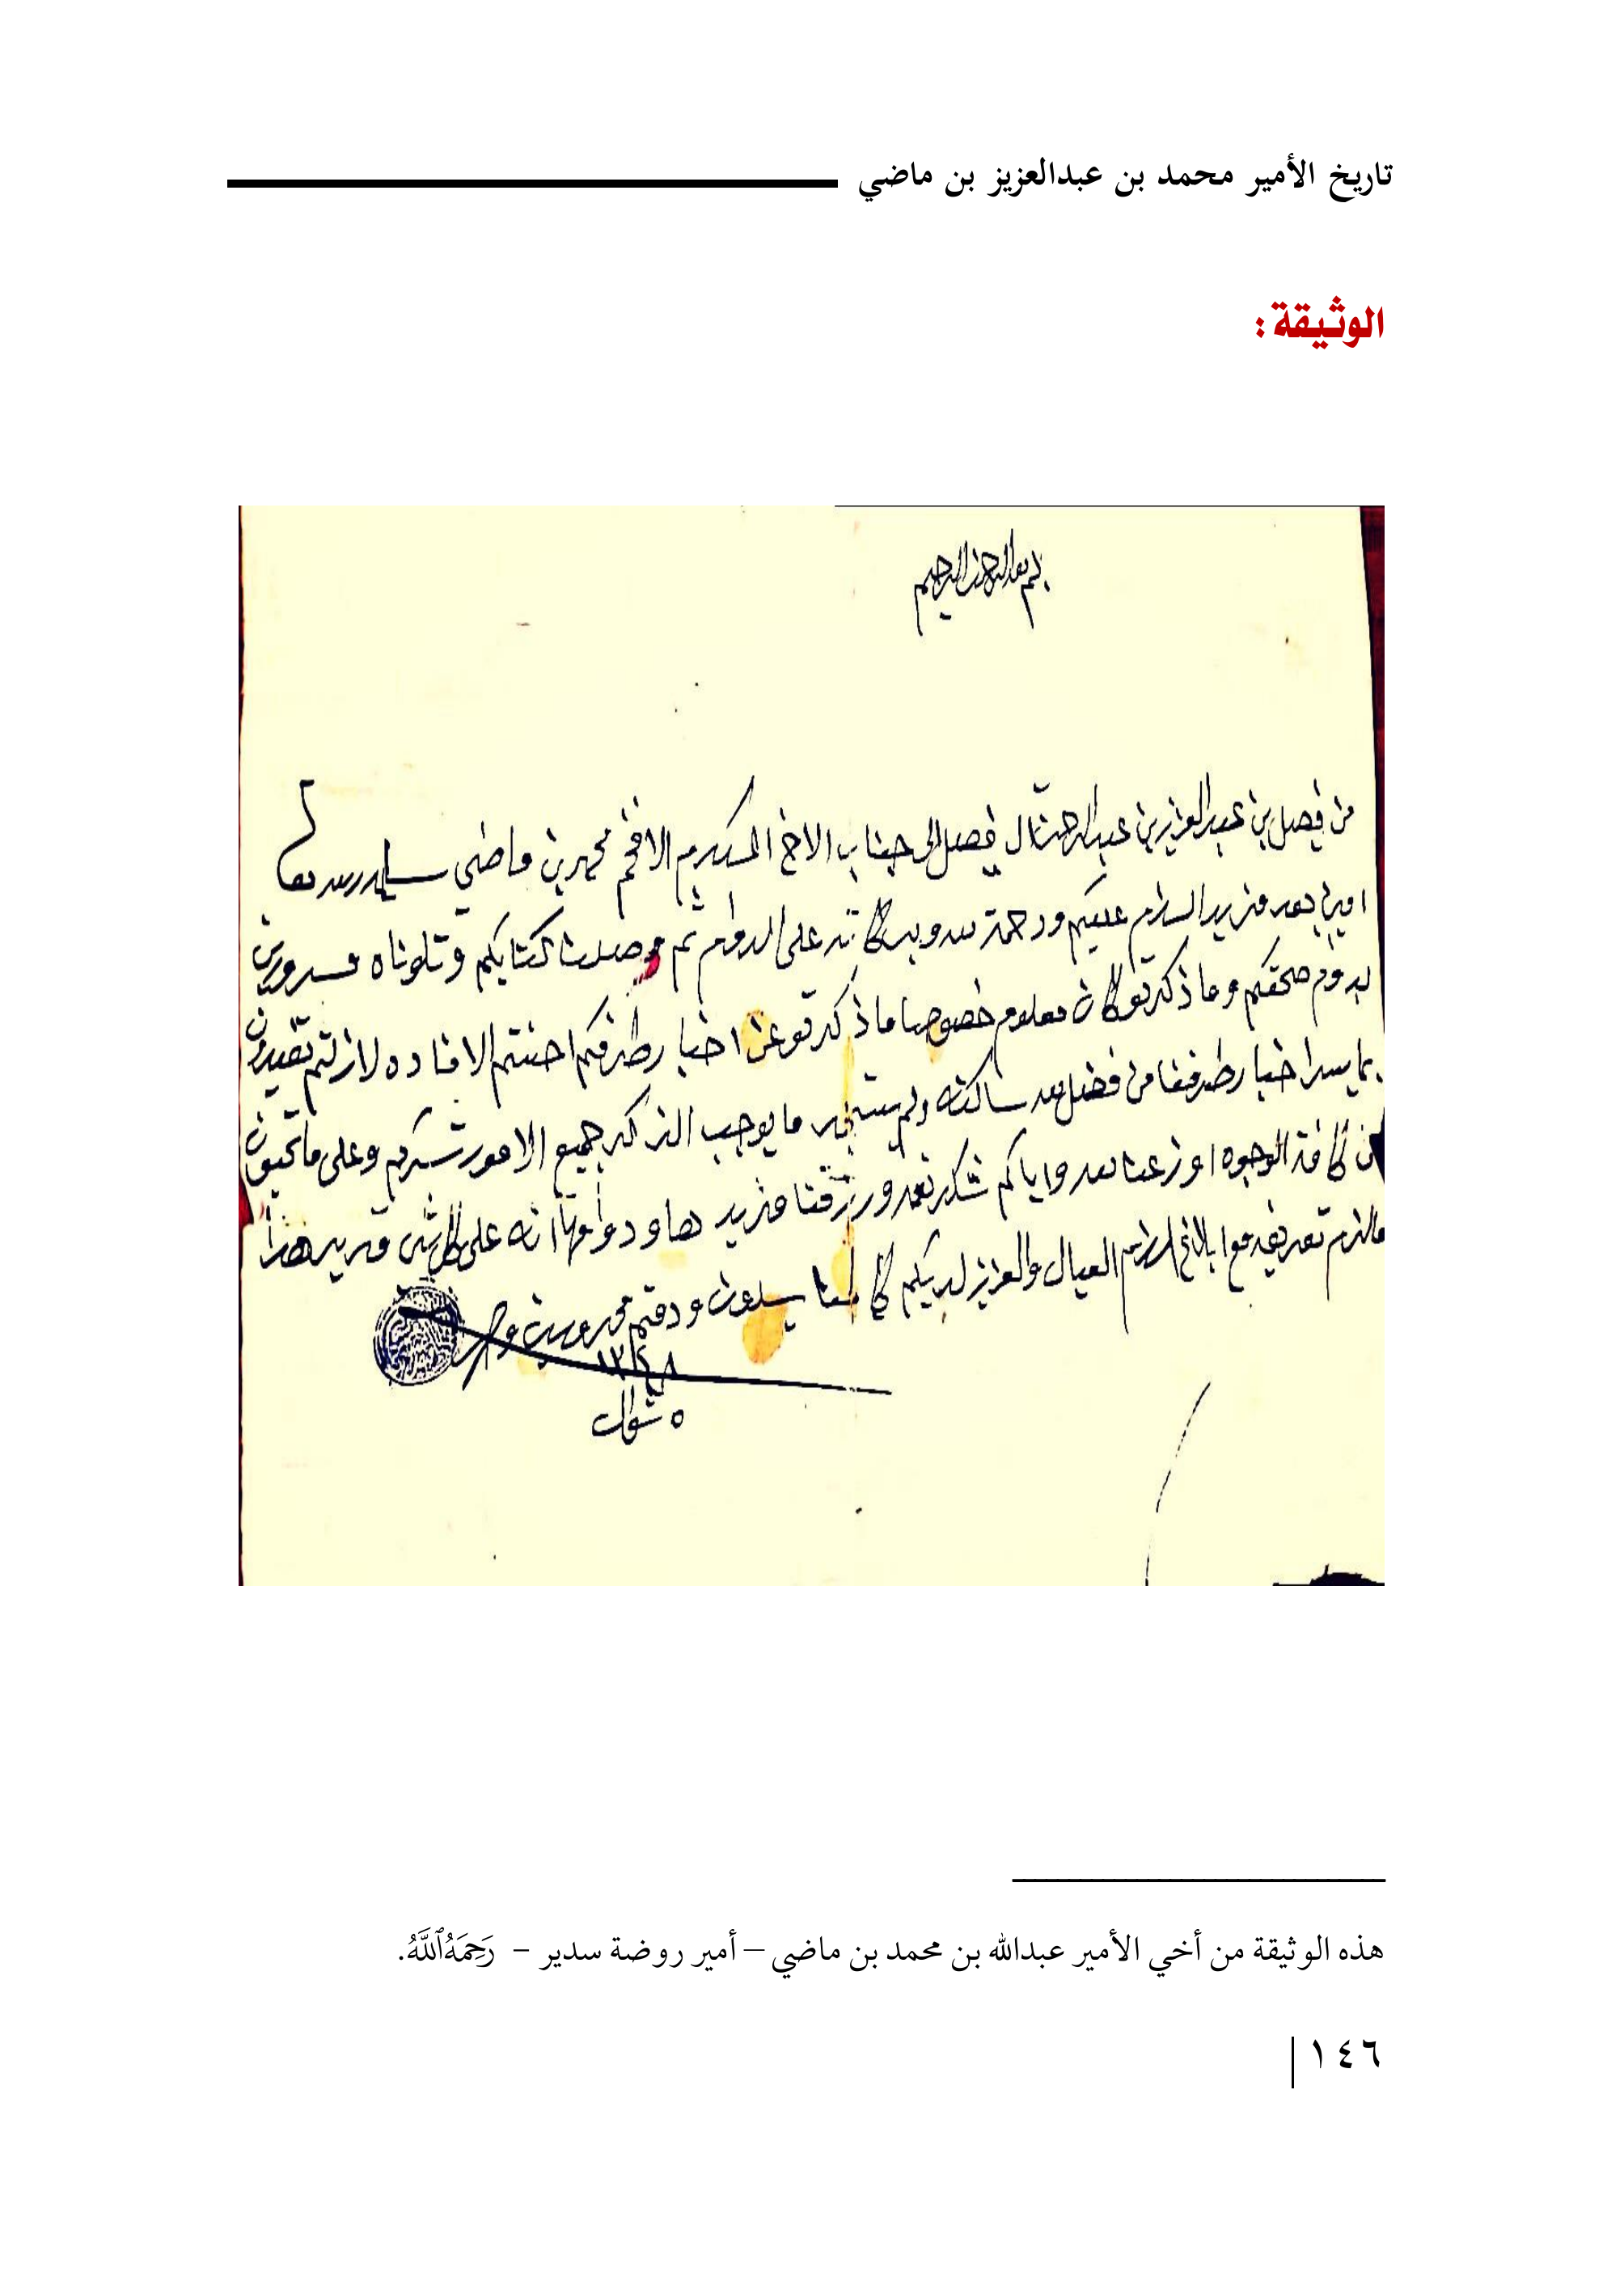 تاريخ الأمير محمد بن عبدالعزيز بن ماضي
الوثيقة :
بسم الله الرحمن الرحيم
من فيصل بن عبدالعزيز بن عبدالرحمن آل فيصل الى جناب الاخ المكرم الافخم محمد بن ماضي سلمه الله تعالى
امين بعد مزيد السلام عليكم ورحمة الله وبركاته على الدوام ثم وصلنا كتابكم وتلوناه مسرورين
بدوام صحتكم وما ذكرتو كان معلوم خصوصا ما ذكرتو عن اخبار طرفكم احسنتم الافاده لا زلتم تفيدون
بما يسر اخبار طرفنا من فضل الله ساكنه ولم يستجد ما يوجب الذكر جميع الامور تسركم وعلى ما تحبون
من كافة الوجوه اوزعنا الله واياكم شكر نعمه ورزقنا مزيدها ودوامها انه على كل شي قدير هذا
مالزم تعريفه مع ابلاغ السلام العيال والعزيز لديكم كما منا يسلمون ودمتم محروسين
١٣٤٨
٥ شوال
هذه الوثيقة من أخي الأمير عبدالله بن محمد بن ماضي – أمير روضة سدير – رَحِمَهُ ٱللَّهُ.
١٤٦ |